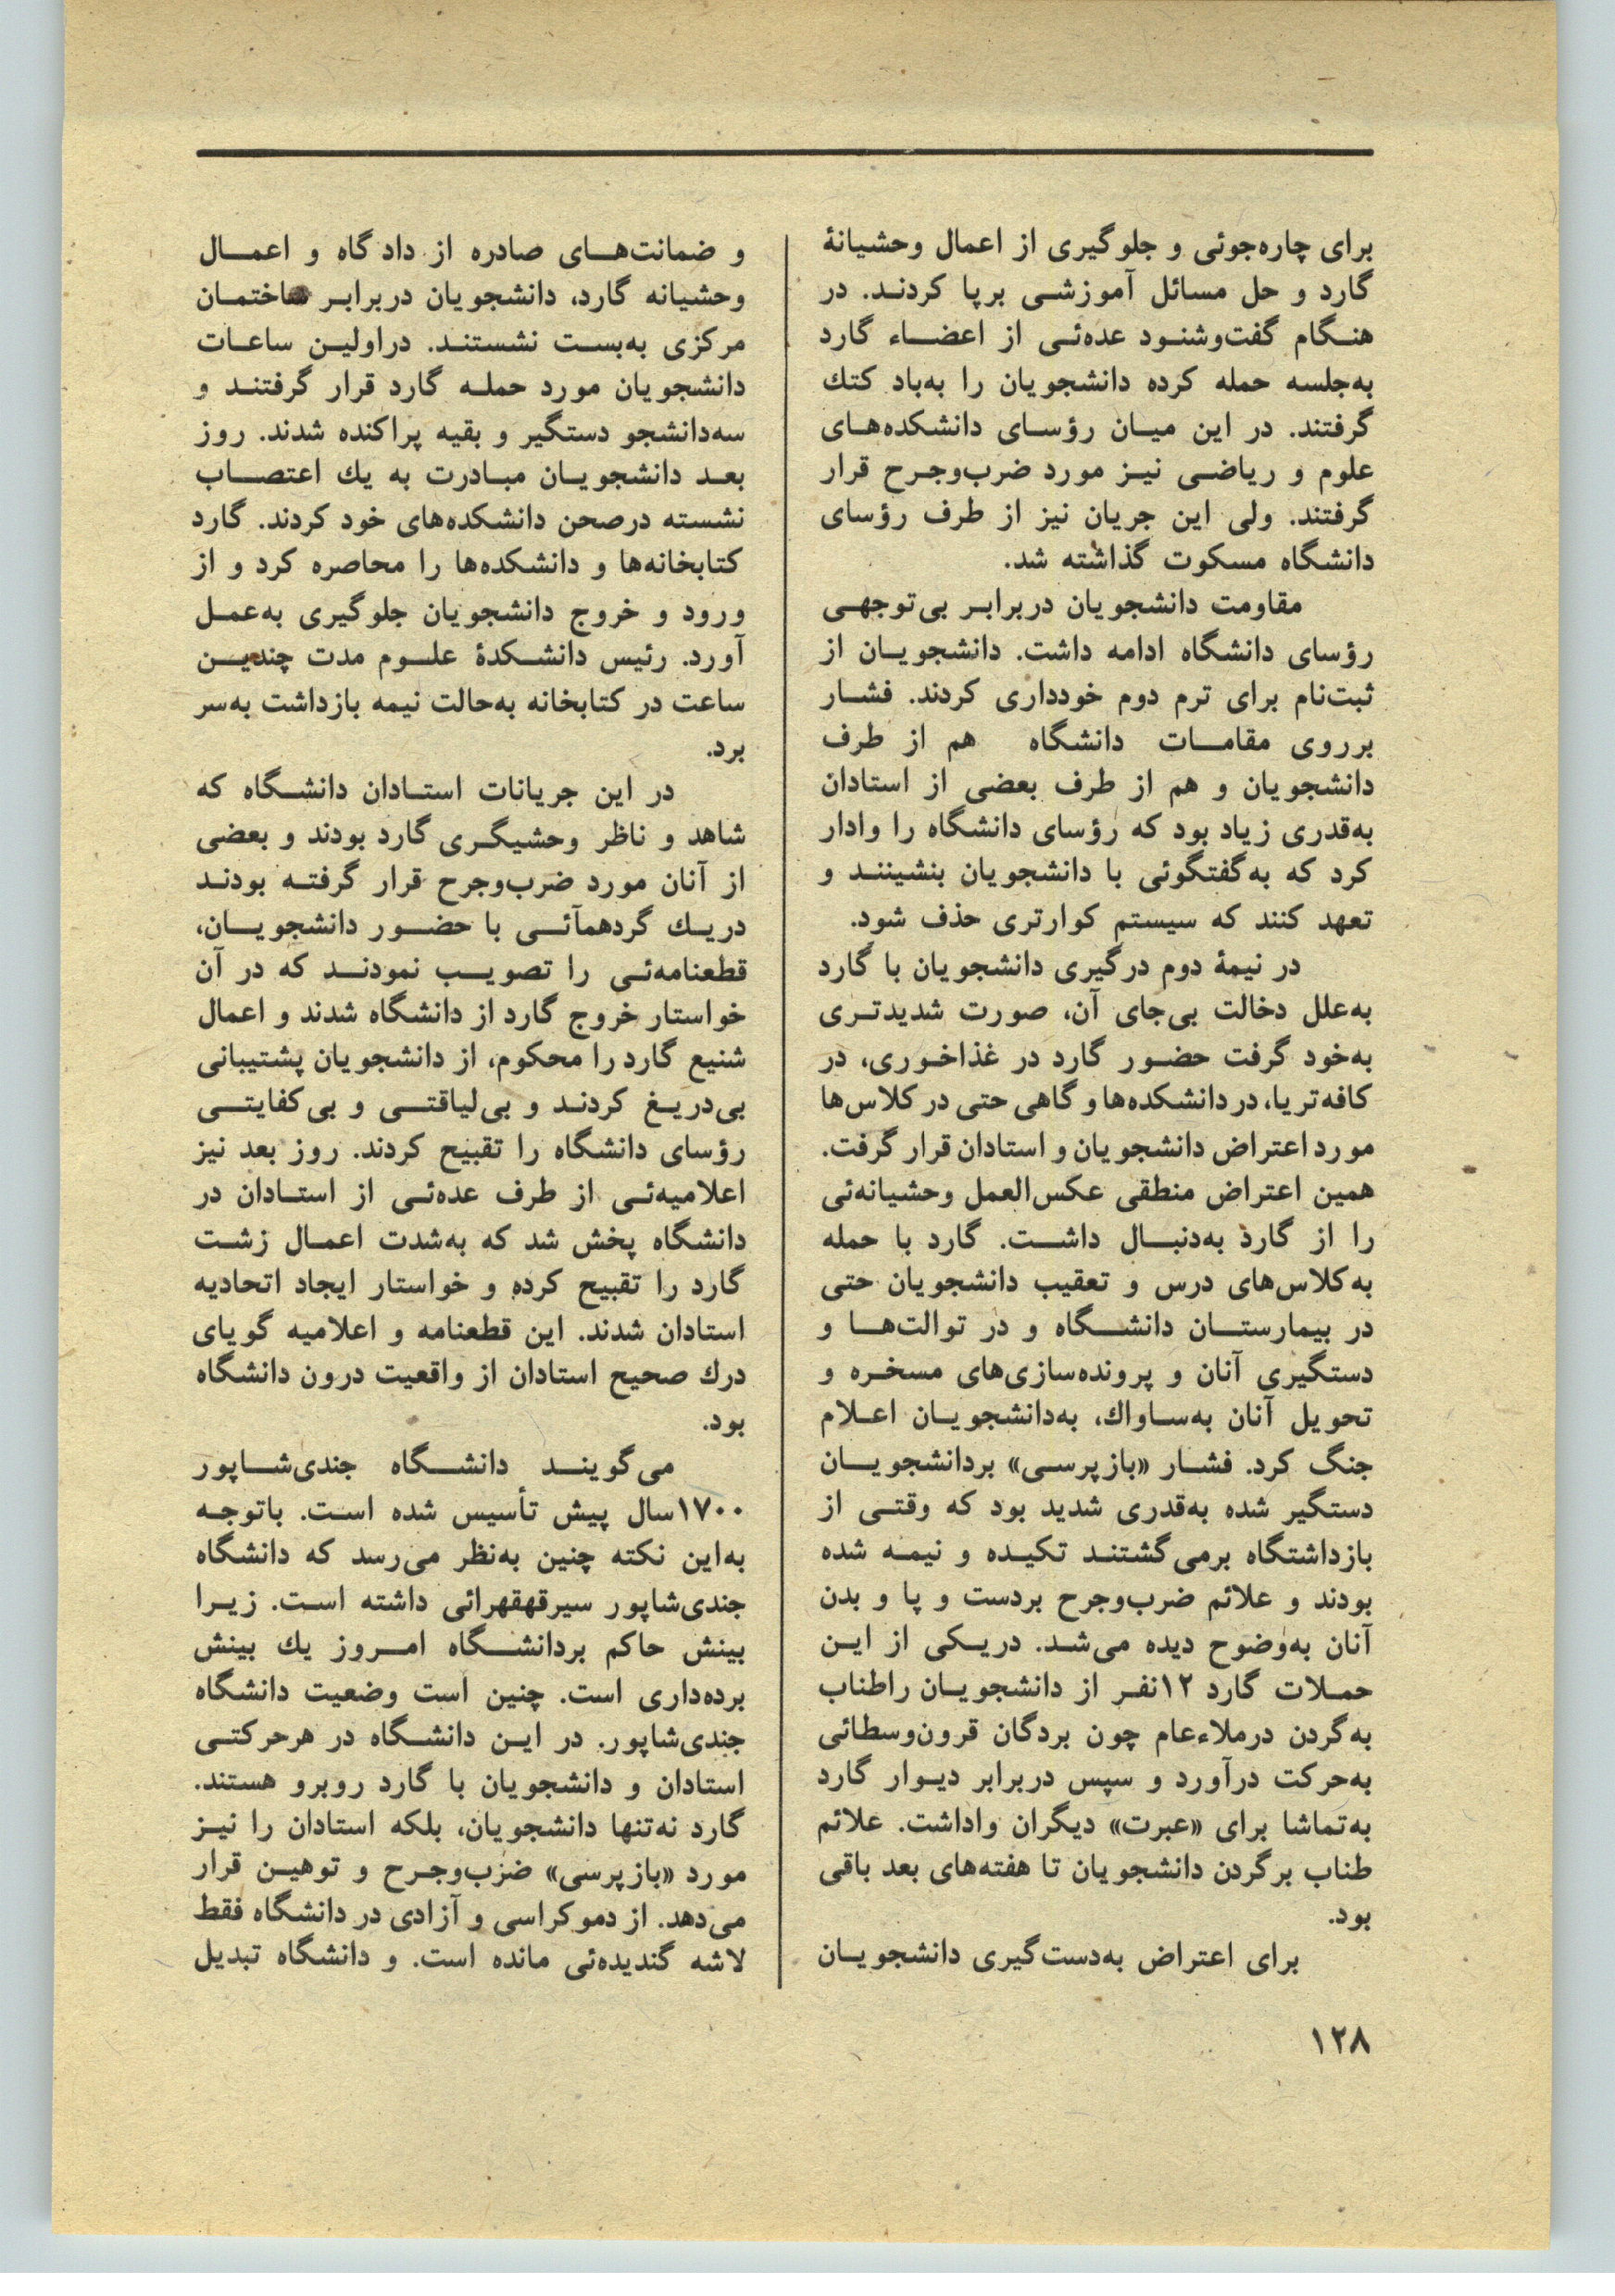 برای چاره‌جوئی و جلوگیری از اعمال وحشیانهٔ
گارد و حل مسائل آموزشی برپا کردند. در
هنگام گفت‌وشنود عده‌ئی از اعضاء گارد
به‌جلسه حمله کرده دانشجویان را به‌باد کتك
گرفتند. در این میان رؤسای دانشکده‌های
علوم و ریاضی نیز مورد ضرب‌وجرح قرار
گرفتند. ولی این جریان نیز از طرف رؤسای
دانشگاه مسکوت گذاشته شد.
مقاومت دانشجویان دربرابر بی‌توجهی
رؤسای دانشگاه ادامه داشت. دانشجویان از
ثبت‌نام برای ترم دوم خودداری کردند. فشار
برروی مقامات دانشگاه هم از طرف
دانشجویان و هم از طرف بعضی از استادان
به‌قدری زیاد بود که رؤسای دانشگاه را وادار
کرد که به‌گفتگوئی با دانشجویان بنشینند و
تعهد کنند که سیستم کوارتری حذف شود.
در نیمهٔ دوم درگیری دانشجویان با گارد
به‌علل دخالت بی‌جای آن، صورت شدیدتری
به‌خود گرفت حضور گارد در غذاخوری، در
کافه‌تریا، در دانشکده‌ها و گاهی حتی در کلاس‌ها
مورد اعتراض دانشجویان و استادان قرار گرفت.
همین اعتراض منطقی عکس‌العمل وحشیانه‌ئی
را از گارد به‌دنبال داشت. گارد با حمله
به‌کلاس‌های درس و تعقیب دانشجویان حتی
در بیمارستان دانشگاه و در توالت‌ها و
دستگیری آنان و پرونده‌سازی‌های مسخره و
تحویل آنان به‌ساواك، به‌دانشجویان اعلام
جنگ کرد. فشار «بازپرسی» بردانشجویان
دستگیر شده به‌قدری شدید بود که وقتی از
بازداشتگاه برمی‌گشتند تکیده و نیمه شده
بودند و علائم ضرب‌وجرح بردست و پا و بدن
آنان به‌وضوح دیده می‌شد. دریکی از این
حملات گارد ۱۲نفر از دانشجویان راطناب
به‌گردن درملاءعام چون بردگان قرون‌وسطائی
به‌حرکت درآورد و سپس دربرابر دیوار گارد
به‌تماشا برای «عبرت» دیگران واداشت. علائم
طناب برگردن دانشجویان تا هفته‌های بعد باقی
بود.
برای اعتراض به‌دست‌گیری دانشجویان
و ضمانت‌های صادره از دادگاه و اعمال
وحشیانه گارد، دانشجویان دربرابر ساختمان
مرکزی به‌بست نشستند. دراولین ساعات
دانشجویان مورد حمله گارد قرار گرفتند و
سه‌دانشجو دستگیر و بقیه پراکنده شدند. روز
بعد دانشجویان مبادرت به یك اعتصاب
نشسته درصحن دانشکده‌های خود کردند. گارد
کتابخانه‌ها و دانشکده‌ها را محاصره کرد و از
ورود و خروج دانشجویان جلوگیری به‌عمل
آورد. رئیس دانشکدهٔ علوم مدت چندین
ساعت در کتابخانه به‌حالت نیمه بازداشت به‌سر
برد.
در این جریانات استادان دانشگاه که
شاهد و ناظر وحشیگری گارد بودند و بعضی
از آنان مورد ضرب‌وجرح قرار گرفته بودند
دریك گردهمآئی با حضور دانشجویان،
قطعنامه‌ئی را تصویب نمودند که در آن
خواستار خروج گارد از دانشگاه شدند و اعمال
شنیع گارد را محکوم، از دانشجویان پشتیبانی
بی‌دریغ کردند و بی‌لیاقتی و بی‌کفایتی
رؤسای دانشگاه را تقبیح کردند. روز بعد نیز
اعلامیه‌ئی از طرف عده‌ئی از استادان در
دانشگاه پخش شد که به‌شدت اعمال زشت
گارد را تقبیح کرده و خواستار ایجاد اتحادیه
استادان شدند. این قطعنامه و اعلامیه گویای
درك صحیح استادان از واقعیت درون دانشگاه
بود.
می‌گویند دانشگاه جندی‌شاپور
۱۷۰۰سال پیش تأسیس شده است. باتوجه
به‌این نکته چنین به‌نظر می‌رسد که دانشگاه
جندی‌شاپور سیرقهقهرائی داشته است. زیرا
بینش حاکم بردانشگاه امروز یك بینش
برده‌داری است. چنین است وضعیت دانشگاه
جندی‌شاپور. در این دانشگاه در هرحرکتی
استادان و دانشجویان با گارد روبرو هستند.
گارد نه‌تنها دانشجویان، بلکه استادان را نیز
مورد «بازپرسی» ضرب‌وجرح و توهین قرار
می‌دهد. از دموکراسی و آزادی در دانشگاه فقط
لاشه گندیده‌ئی مانده است. و دانشگاه تبدیل
۱۲۸